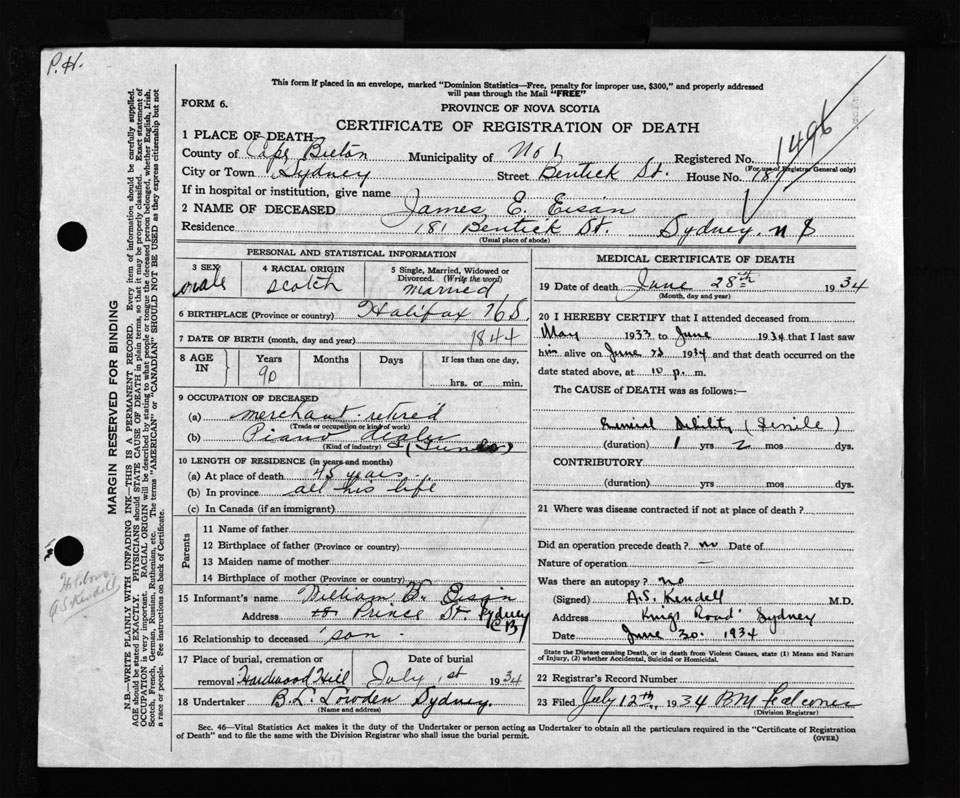 P.H.
This form if placed in an envelope, marked "Dominion Statistics—Free, penalty for improper use, $300," and properly addressed
will pass through the Mail "FREE"
FORM 6.
PROVINCE OF NOVA SCOTIA
CERTIFICATE OF REGISTRATION OF DEATH
1496
1 PLACE OF DEATH
County of Cape Breton Municipality of No 1 Registered No.
(For use of Registrar General only)
City or Town Sydney Street Bentick St. House No. 181
If in hospital or institution, give name
2 NAME OF DECEASED James E. Eisan
Residence 181 Bentick St. Sydney. N S
(Usual place of abode)
PERSONAL AND STATISTICAL INFORMATION
3 SEX male
4 RACIAL ORIGIN Scotch
5 Single, Married, Widowed or Divorced. (Write the word) married
6 BIRTHPLACE (Province or country) Halifax N.S.
7 DATE OF BIRTH (month, day and year) 1844
8 AGE IN Years 90 Months Days If less than one day, hrs. or min.
9 OCCUPATION OF DECEASED
(a) merchant retired
(Trade or occupation or kind of work)
(b) Piano dealer
(Kind of industry)
10 LENGTH OF RESIDENCE (in years and months)
(a) At place of death 45 years
(b) In province all his life
(c) In Canada (if an immigrant)
Parents
11 Name of father
12 Birthplace of father (Province or country)
13 Maiden name of mother
14 Birthplace of mother (Province or country)
15 Informant's name William B. Eisan
Address Prince St. Sydney CB
16 Relationship to deceased son
17 Place of burial, cremation or removal Hardwood Hill Date of burial July 1st 1934
18 Undertaker B.L. Lowden Sydney.
(Name and address)
MEDICAL CERTIFICATE OF DEATH
19 Date of death June 28th 1934
(Month, day and year)
20 I HEREBY CERTIFY that I attended deceased from
May 1933 to June 1934 that I last saw
him alive on June 1934 and that death occurred on the
date stated above, at 10 p. m.
The CAUSE of DEATH was as follows:—
General Debility (Senile)
(duration) 1 yrs 2 mos dys.
CONTRIBUTORY
(duration) yrs. mos. dys.
21 Where was disease contracted if not at place of death?
Did an operation precede death? no Date of
Nature of operation —
Was there an autopsy? no
(Signed) A.S. Kendell M.D.
Address Kings Road Sydney
Date June 30. 1934
State the Disease causing Death, or in death from Violent Causes, state (1) Means and Nature
of Injury, (2) whether Accidental, Suicidal or Homicidal.
22 Registrar's Record Number
23 Filed July 12th, 1934 BM Falconer
(Division Registrar)
Sec. 46—Vital Statistics Act makes it the duty of the Undertaker or person acting as Undertaker to obtain all the particulars required in the "Certificate of Registration
of Death" and to file the same with the Division Registrar who shall issue the burial permit.
(OVER)
MARGIN RESERVED FOR BINDING
N.B.—WRITE PLAINLY WITH UNFADING INK—THIS IS A PERMANENT RECORD. Every item of information should be carefully supplied.
AGE should be stated EXACTLY. PHYSICIANS should STATE CAUSE OF DEATH in plain terms, so that it may be properly classified. Exact statement of
OCCUPATION is very important. RACIAL ORIGIN will be described by stating to what people or tongue the deceased person belonged, whether English, Irish,
Scotch, French, German, Russian, Ruthenian, etc. The terms "AMERICAN" or "CANADIAN" SHOULD NOT BE USED as they express citizenship but not
a race or people. See instructions on back of Certificate.
A S Kendell